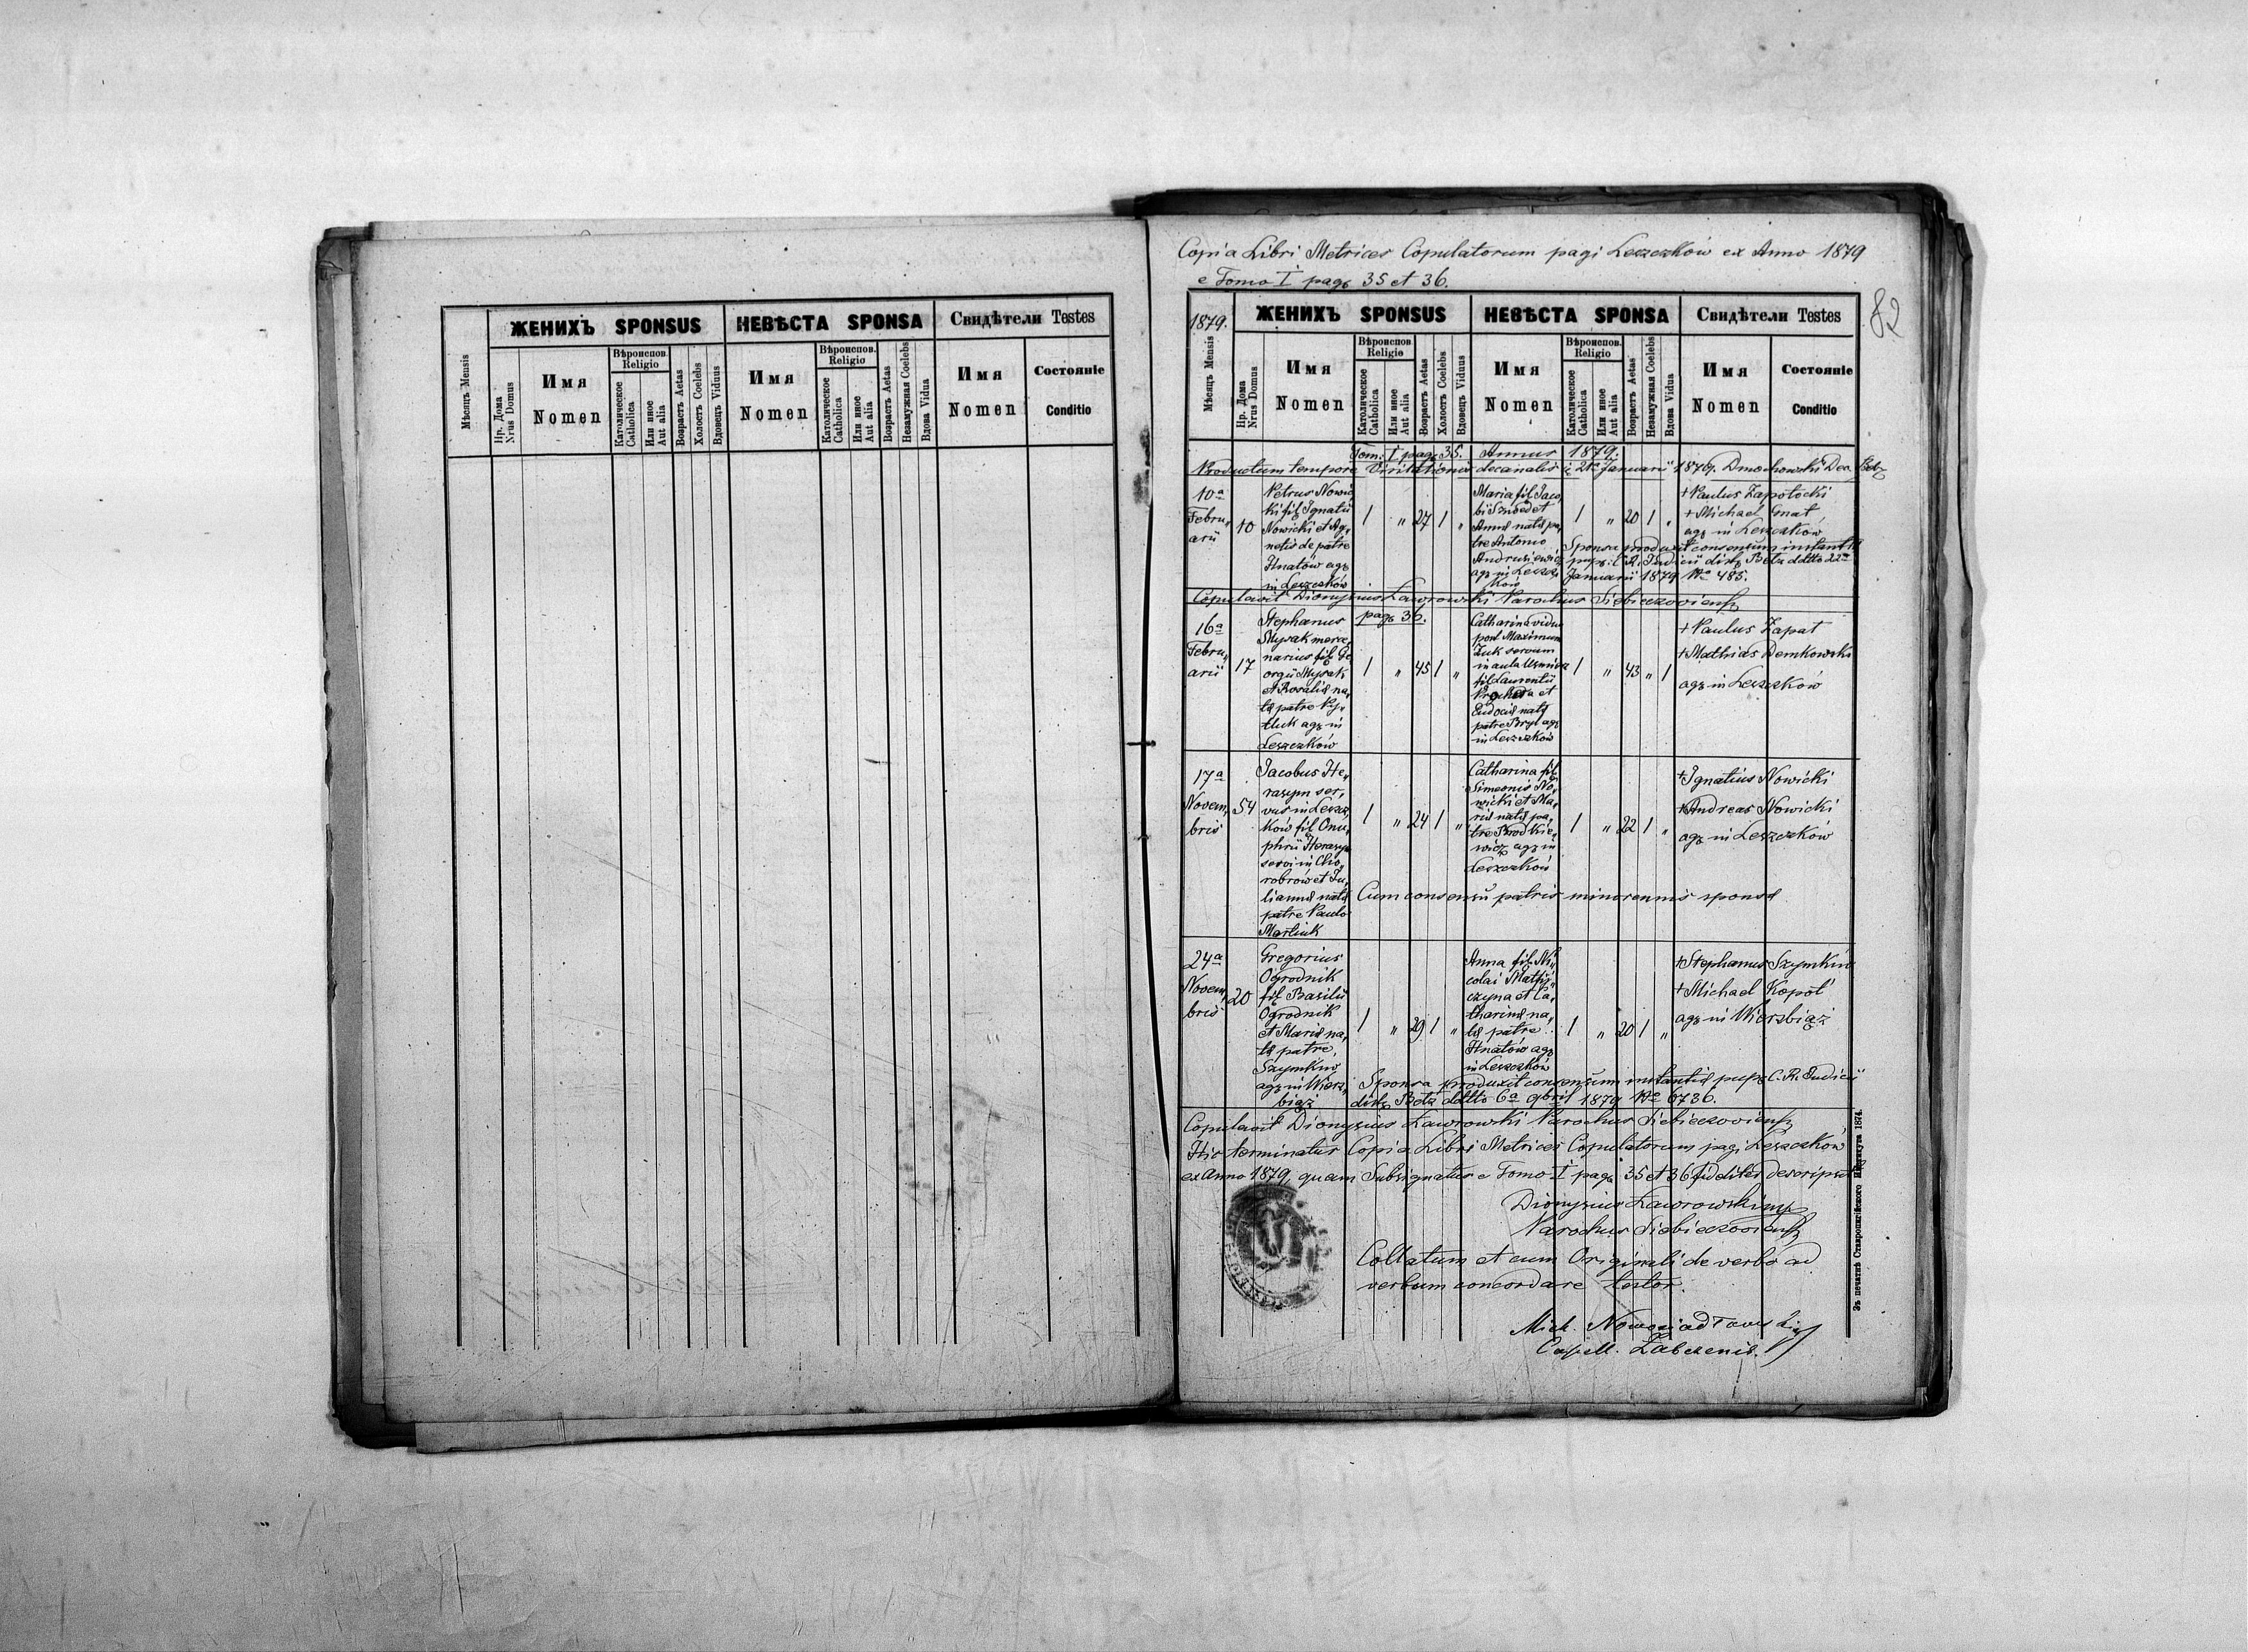 ЖЕНИХЪ SPONSUS
НЕВѢСТА SPONSA
Свидѣтели Testes
Мѣсяцъ Mensis
Нр. Дома
Nrus Domus
Имя
Nomen
Вѣроиспов.
Religio
Католическое
Catholica
Или иное
Aut alia
Возрастъ Aetas
Холостъ Coelebs
Вдовецъ Viduus
Имя
Nomen
Вѣроиспов.
Religio
Католическое
Catholica
Или иное
Aut alia
Возрастъ Aetas
Незамужная Coelebs
Вдова Vidua
Имя
Nomen
Состояніе
Conditio
Copia Libri Metrices Copulatorum pagi Leszczków ex Anno 1879
e Tomo I pag. 35 et 36.
82
1879.
ЖЕНИХЪ SPONSUS
НЕВѢСТА SPONSA
Свидѣтели Testes
Мѣсяцъ Mensis
Нр. Дома
Nrus Domus
Имя
Nomen
Вѣроиспов.
Religio
Католическое
Catholica
Или иное
Aut alia
Возрастъ Aetas
Холостъ Coelebs
Вдовецъ Viduus
Имя
Nomen
Вѣроиспов.
Religio
Католическое
Catholica
Или иное
Aut alia
Возрастъ Aetas
Незамужная Coelebs
Вдова Vidua
Имя
Nomen
Состояніе
Conditio
Tom. I pag. 35. Annus 1879.
Productum tempore Visitationis decanalis 21a Januarii 1879. Dmochowski Dec. Betz
10a
Febru„
arii
10
Petrus Nowic
ki fil. Ignatii
Nowicki et Ag„
netis de patre
Hnatów agr.
in Leszczków
1 „ 27 1 „
Maria fil. Jaco„
bi Szwed et
Annæ natæ pa„
tre Antonio
Andrusiewicz
agr. in Leszcz
ków
1 „ 20 1 „
+Paulus Zapotocki
+Michael Gnat
agr. in Leszczków
Sponsa produxit consensum instantiæ
pup. C. R. Judicii distr. Betz ddtto 22a
Januarii 1879 No 485.
Copulavit Dionysius Lawrowski Parochus Siebieczoviens.
pag. 36.
16a
Febru„
arii
17
Stephanus
Mysak merce„
narius fil. Ge„
orgii Mysak
et Rosaliæ na„
tæ patre Py„
tluk agr. in
Leszczków
1 „ 45 1 „
Catharina vidua
post Maximum
Zuk servum
in aula
fil. Laurentii
Prochera et
Eudociæ natæ
patre Bryl agr.
in Leszczków
1 „ 43 „ 1
+Paulus Zapat
+Mathias Demkowski
agr. in Leszczków
17a
Novem„
bris
54
Jacobus He„
rasym ser„
vus in Leszcz„
ków fil. Onu„
phrii Herasym
servi in Cho„
robrów et Ju„
liannæ natæ
patre Paulo
Martiuk
1 „ 24 1 „
Catharina fil.
Simeonis No„
wicki et Ma„
riæ natæ pa„
tre Brodkie„
wicz agr. in
Leszczków
1 „ 22 1 „
+Ignatius Nowicki
+Andreas Nowicki
agr. in Leszczków
Cum consensu patris minorennis sponsæ
24a
Novem„
bris
20
Gregorius
Ogrodnik
fil. Basilii
Ogrodnik
et Mariæ na„
tæ patre
Szymkiw
agr. in Wierz„
biąż
1 „ 29 1 „
Anna fil. Ni„
colai Matij„
czyna et Ca„
tharinæ na„
tæ patre
Hnatów agr.
in Leszczków
1 „ 20 1 „
+Stephanus Szymkiw
+Michael Kopot
agr. in Wierzbiąż
Sponsa produxit consensum instantiæ pup. C. R. Judicii
distr. Betz ddtto 6a 9bris 1879 No 6736.
Copulavit Dionysius Lawrowski Parochus Siebieczoviens.
Hic terminatur Copia Libri Metrices Copulatorum pagi Leszczków
ex Anno 1879, quam Subsignatus e Tomo I pag. 35 et 36 fideliter descripsit
Dionysius Lawrowski mp
Parochus Siebieczoviens.
Collatum et cum Originali de verbo ad
verbum concordare testor.
Mich.
Capell.
Зъ печатнѣ Ставропигійского Института 1874.